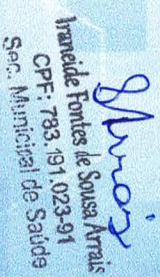 Arrais
Iraneide Fontes de Sousa Arrais
CPF: 783.191.023-91
Sec. Municipal de Saúde